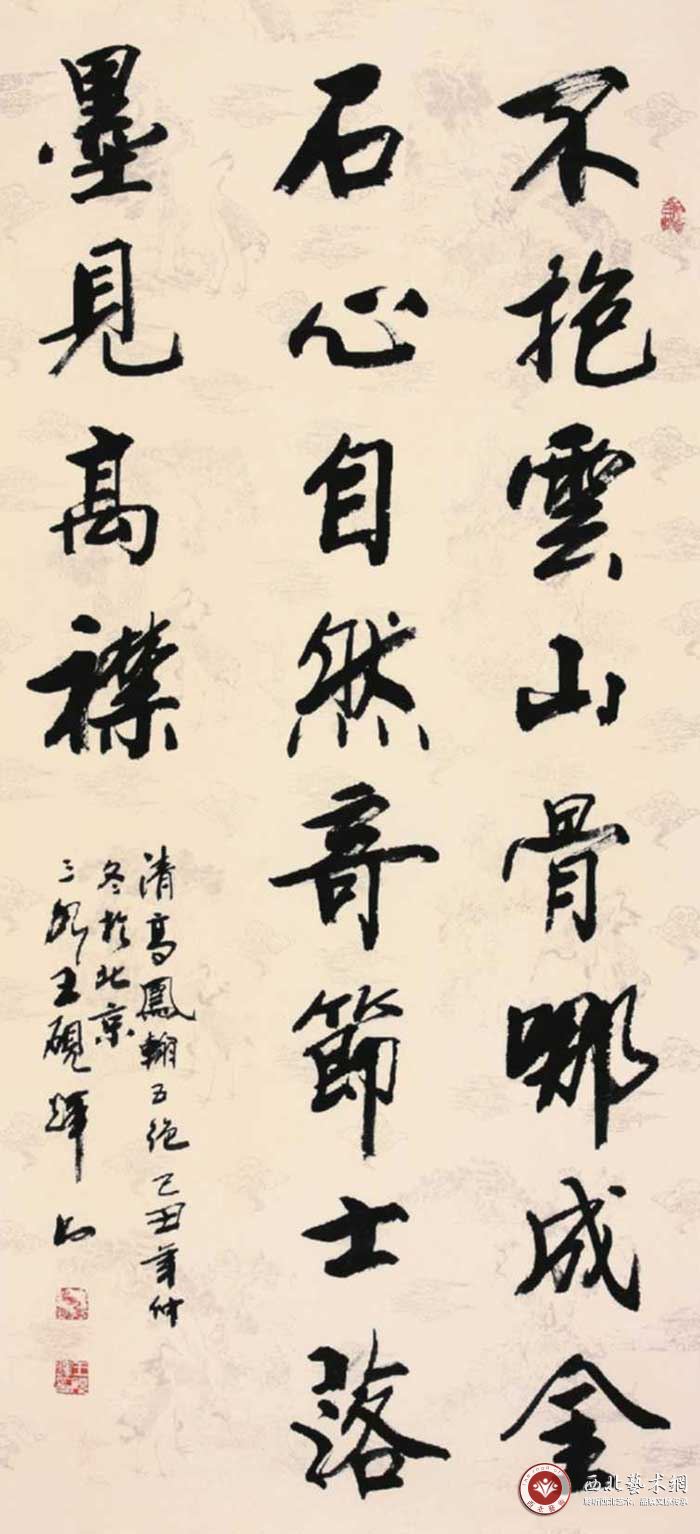 不抱雲山骨哪成金
石心自然奇節士落
墨見高襟
清高鳳翰五絕己丑年仲
冬於北京
王硯輝書
西北藝术網